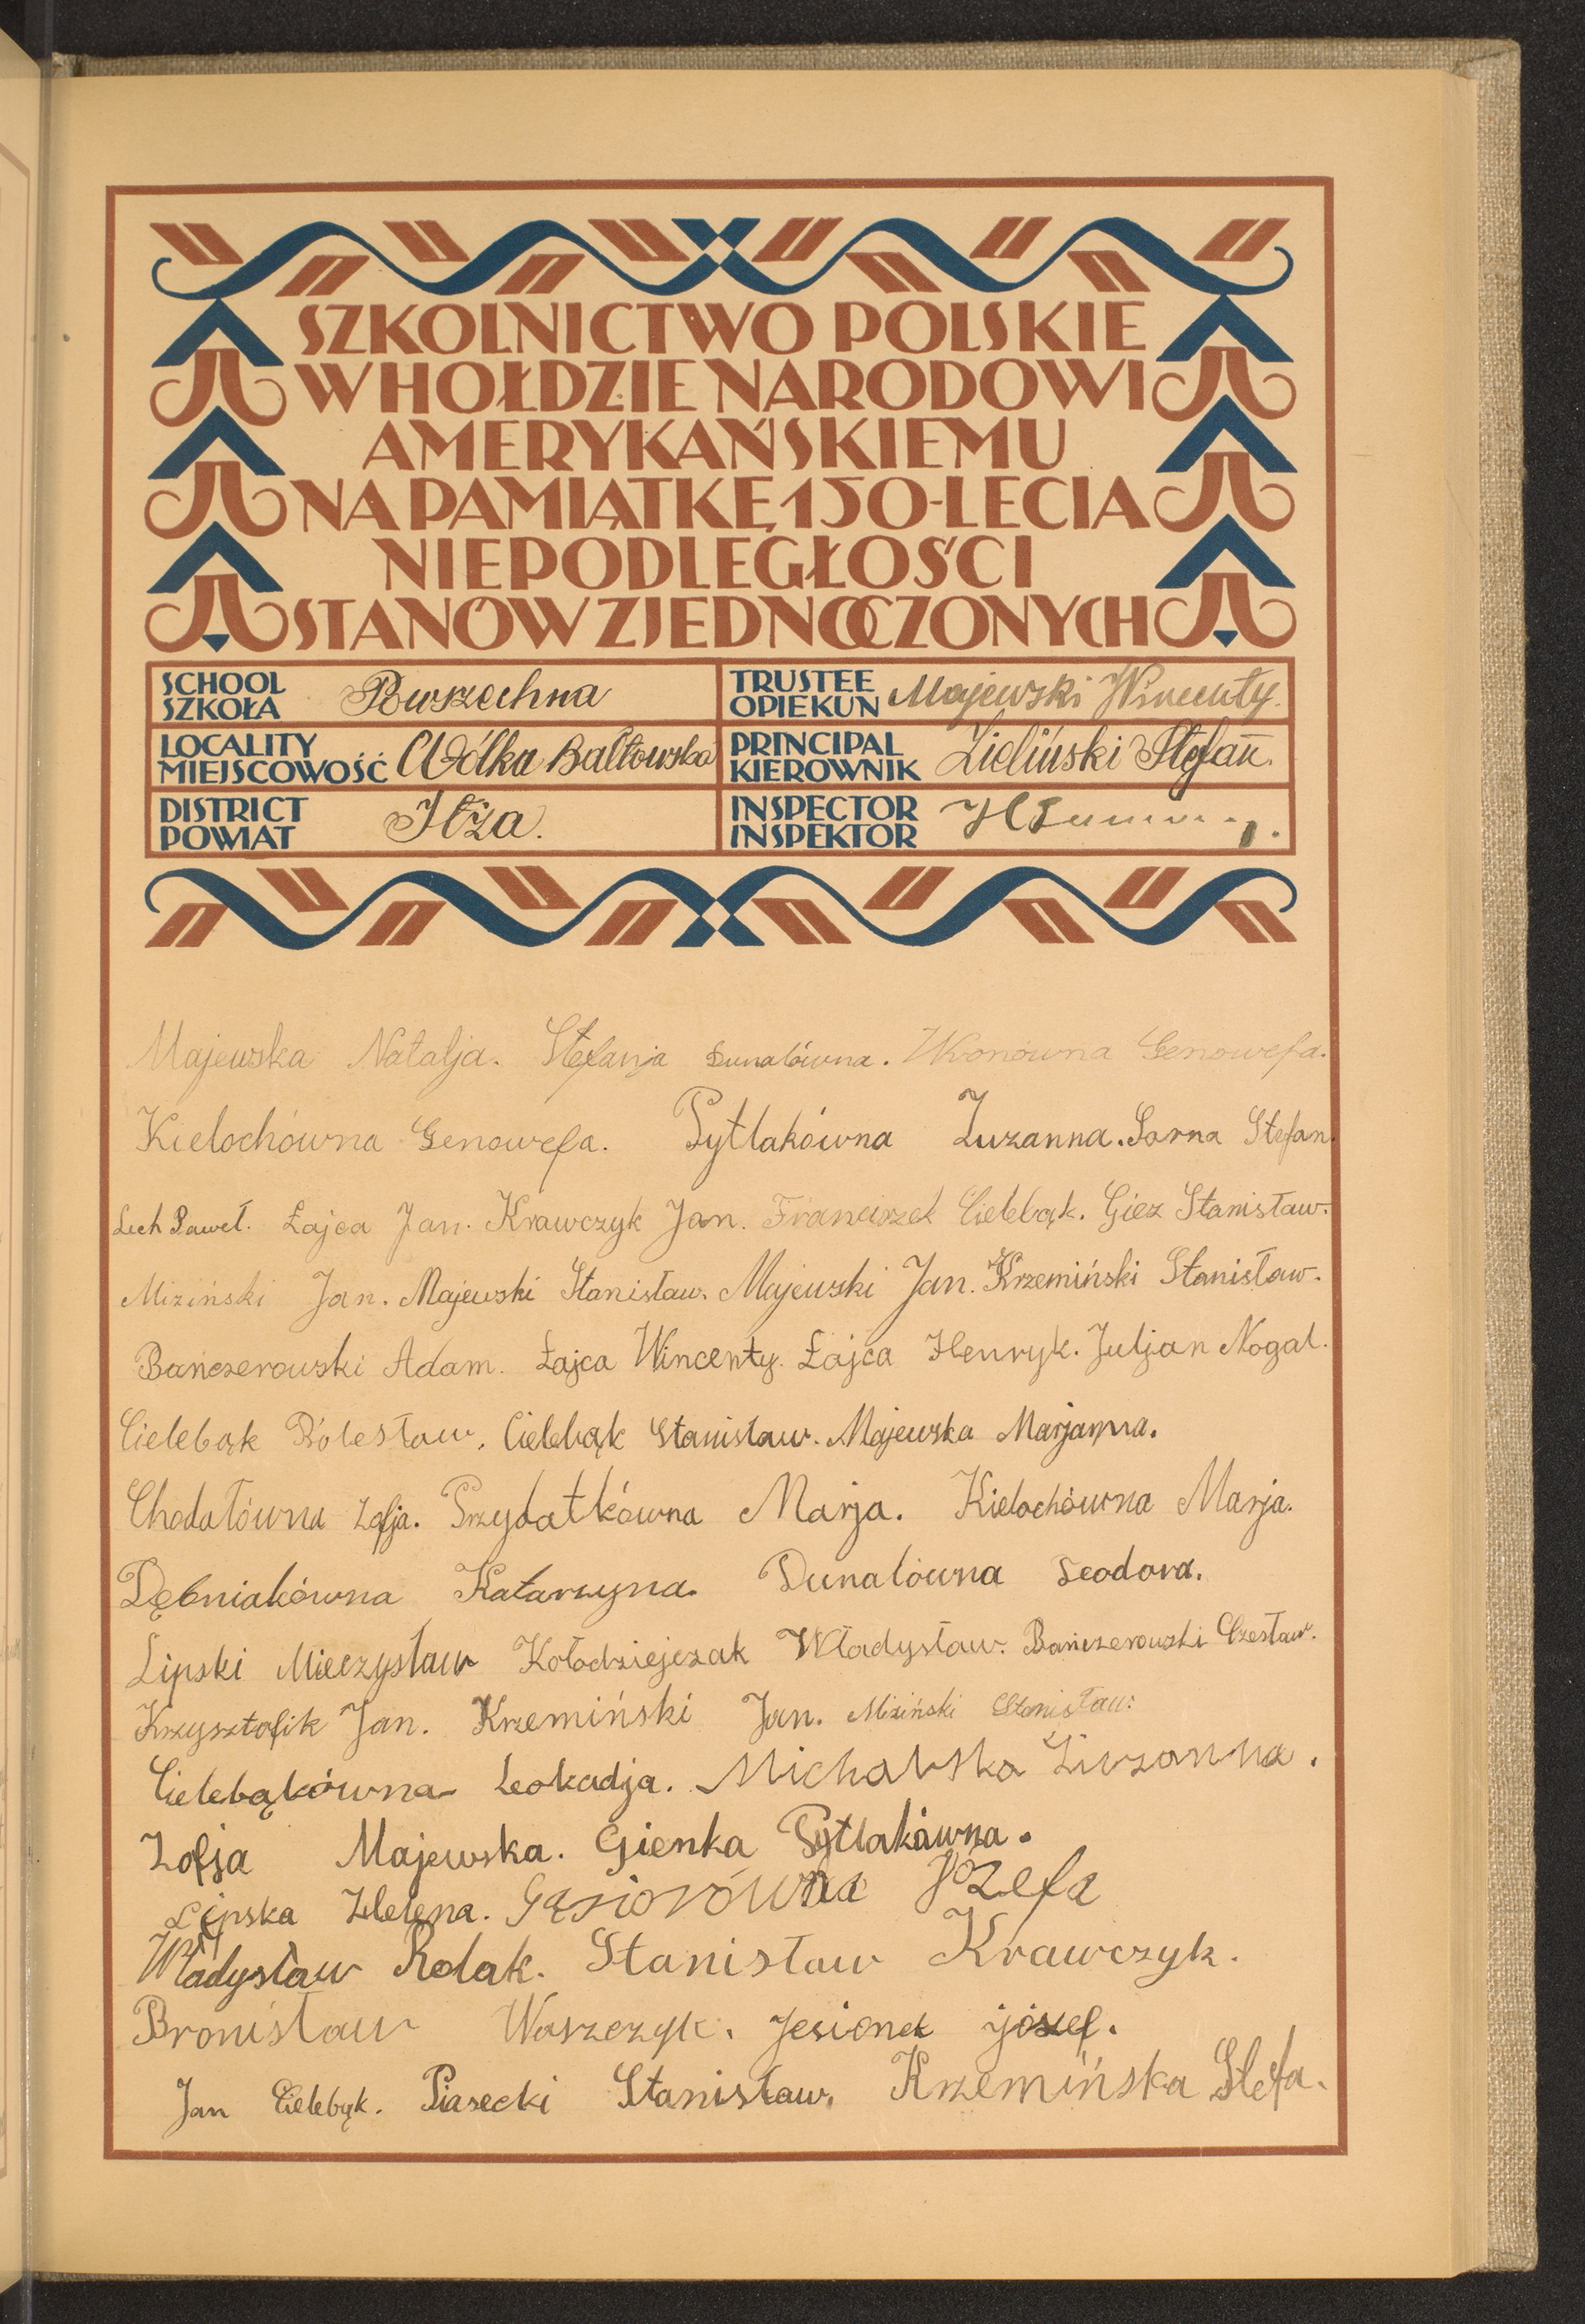 SZKOLNICTWO POLSKIE
W HOŁDZIE NARODOWI
AMERYKAŃSKIEMU
NA PAMIĄTKĘ 150-LECIA
NIEPODLEGŁOŚCI
STANÓW ZJEDNOCZONYCH
SCHOOL
SZKOŁA Powszechna
TRUSTEE
OPIEKUN Majewski Wincenty.
LOCALITY
MIEJSCOWOŚĆ Wólka Bałtowska
PRINCIPAL
KIEROWNIK Zieliński Stefan.
DISTRICT
POWIAT Iłża.
INSPECTOR
INSPEKTOR
Majewska Natalja. Stefanja Dunalówna. Wronówna Genowefa.
Kielochówna Genowefa. Pytlakówna Zuzanna. Sarna Stefan.
Lech Paweł. Łajca Jan. Krawczyk Jan. Franciszek Cielebąk. Giez Stanisław.
Miziński Jan. Majewski Stanisław. Majewski Jan. Krzemiński Stanisław.
Bańczerowski Adam. Łajca Wincenty. Łajca Henryk. Juljan Nogal.
Cielebąk Bolesław. Cielebąk Stanisław. Majewska Marjanna.
Chodałówna Zofja. Przydatkówna Marja. Kielochówna Marja.
Dębniakówna Katarzyna. Dunalówna Teodora.
Lipski Mieczysław Kołodziejczak Władysław. Bańczerowski Czesław.
Krzysztofik Jan. Krzemiński Jan. Miziński Stanisław.
Cielebąkówna Leokadja. Michalska Zuzanna.
Zofja Majewska. Gienka Pytlakówna.
Lipska Helena. Gąsiorówna Józefa
Władysław Rolak. Stanisław Krawczyk.
Bronisław Waszczyk. Jesionek józef.
Jan Cielebąk. Piasecki Stanisław. Krzemińska Stefa.